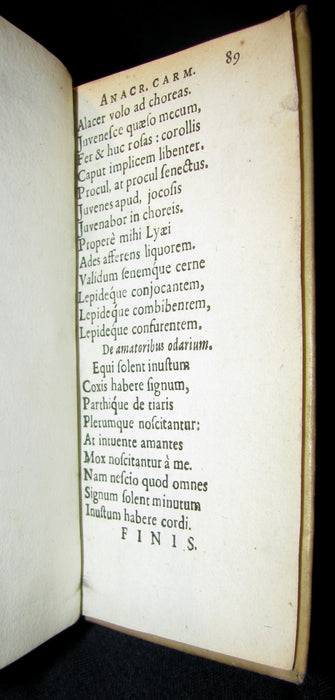 ANACR. CARM. 89
Alacer volo ad choreas.
Juvenesce quæso mecum,
Fer & huc rosas: corollis
Caput implicem libenter.
Procul, at procul senectus.
Juvenes apud, jocosis
Juvenabor in choreis.
Properè mihi Lyæi
Ades afferens liquorem.
Validum senemque cerne
Lepidéque conjocantem,
Lepidéque combibentem,
Lepideque confurentem.
De amatoribus odarium.
Equi solent inustum
Coxis habere signum,
Parthique de tiaris
Plerumque noscitantur:
At intuente amantes
Mox noscitantur à me.
Nam nescio quod omnes
Signum solent minutum
Inustum habere cordi.
FINIS.